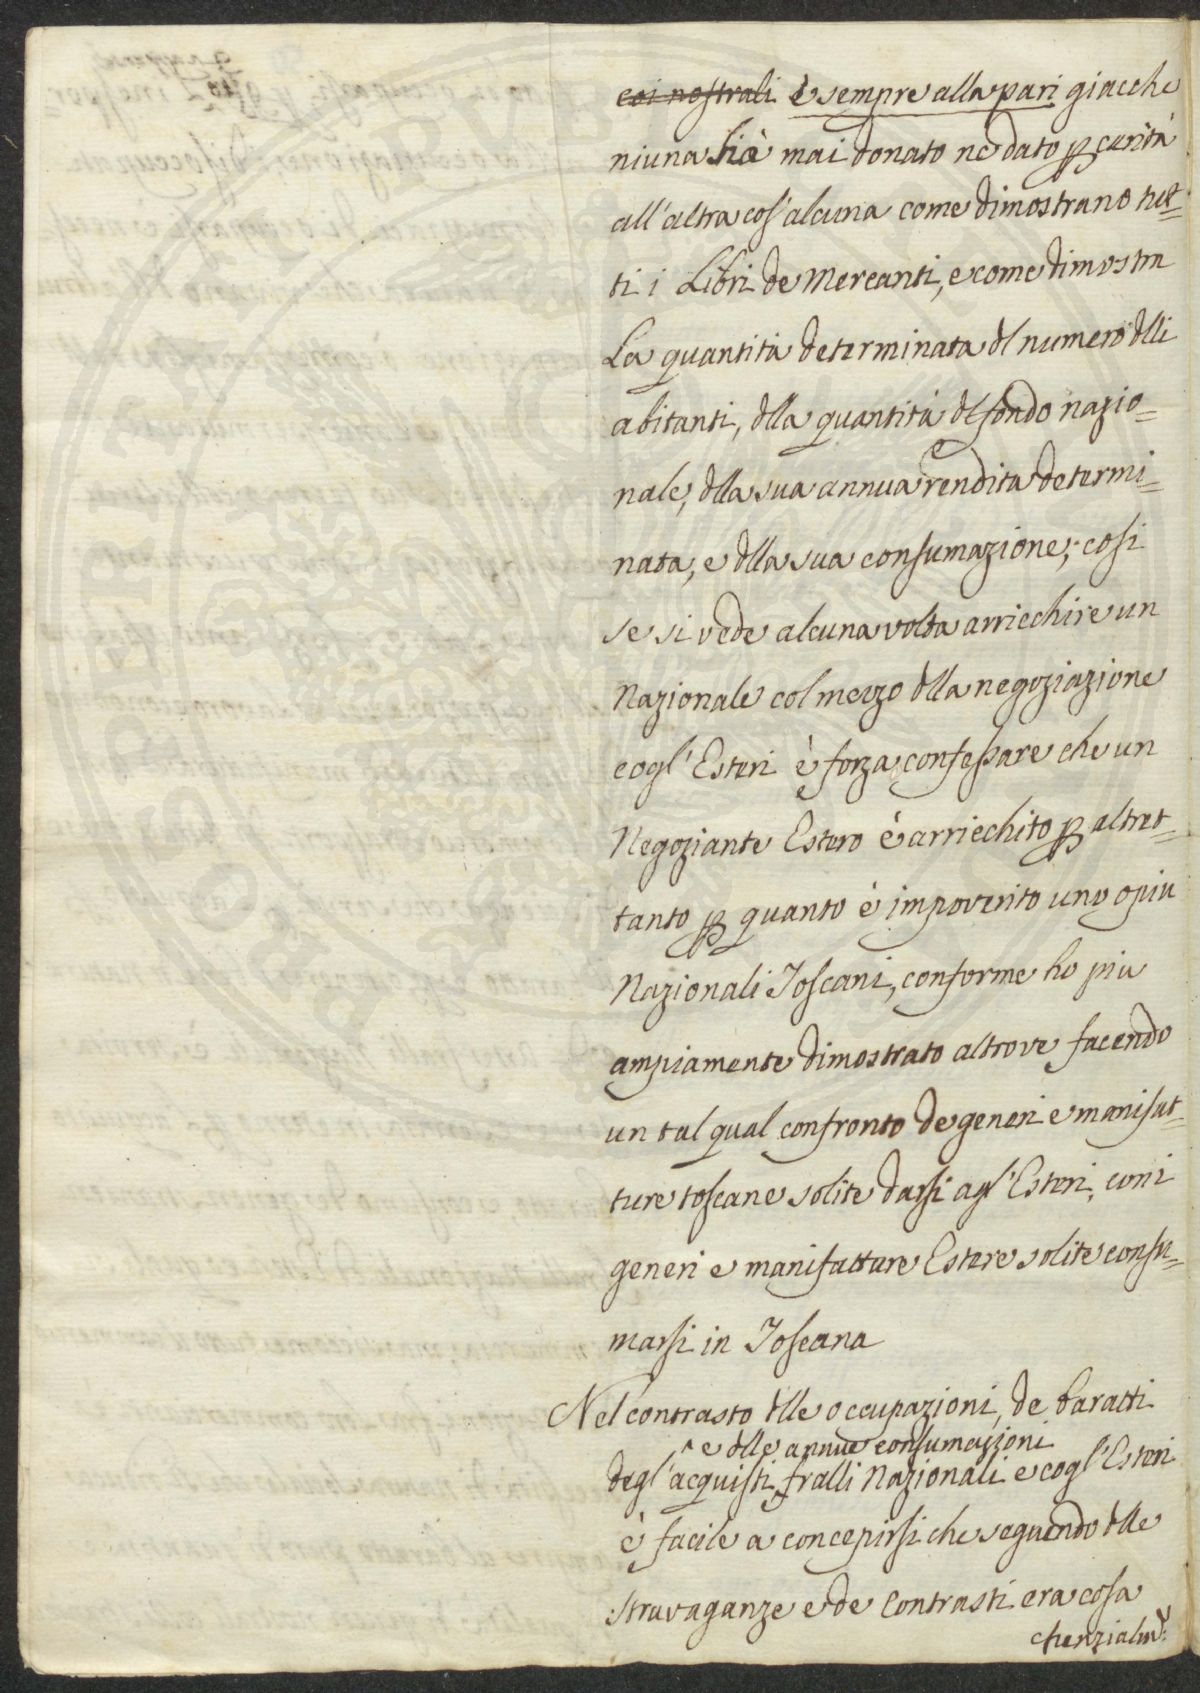 coi nostrali è sempre alla pari giacche
niuna hà mai donato ne dato p carità
all'altra cos'alcuna come dimostrano tut=
ti i Libri de Mercanti, e come dimostra
La quantità determinata dl numero dlli
abitanti, dlla quantità dl fondo nazio=
nale, dlla sua annua rendita determi=
nata, e dlla sua consumazione; cosi
se si vede alcuna volta arricchire un
Nazionale col mezzo dlla negoziazione
cogl'Esteri è forza confessare che un
Negoziante Estero è arricchito p altret=
tanto p quanto è impoverito uno o piu
Nazionali Toscani, conforme ho piu
ampiamente dimostrato altrove facendo
un tal qual confronto de generi e manifat=
ture toscane solite darsi agl'Esteri, con i
generi e manifatture Estere solite consu=
marsi in Toscana
Nel contrasto dlle occupazioni, de baratti
^ e dlle annue consumazioni
degl'acquisti fralli Nazionali e cogl'Esteri
è facile a concepirsi che seguendo dlle
stravaganze e de contrasti era cosa